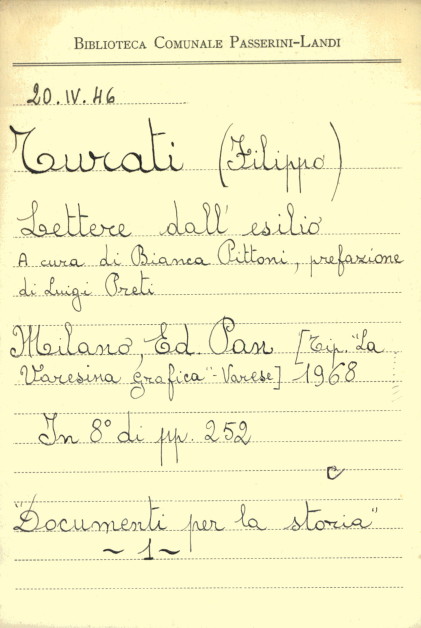 BIBLIOTECA COMUNALE PASSERINI-LANDI
20.IV.46
Turati (Filippo)
Lettere dall' esilio
A cura di Bianca Pittoni, prefazione
di Luigi Preti
Milano, Ed. Pan [Tip. "La
Varesina grafica"-Varese] 1968
In 8° di pp. 252
C
"Documenti per la storia"
~ 1 ~